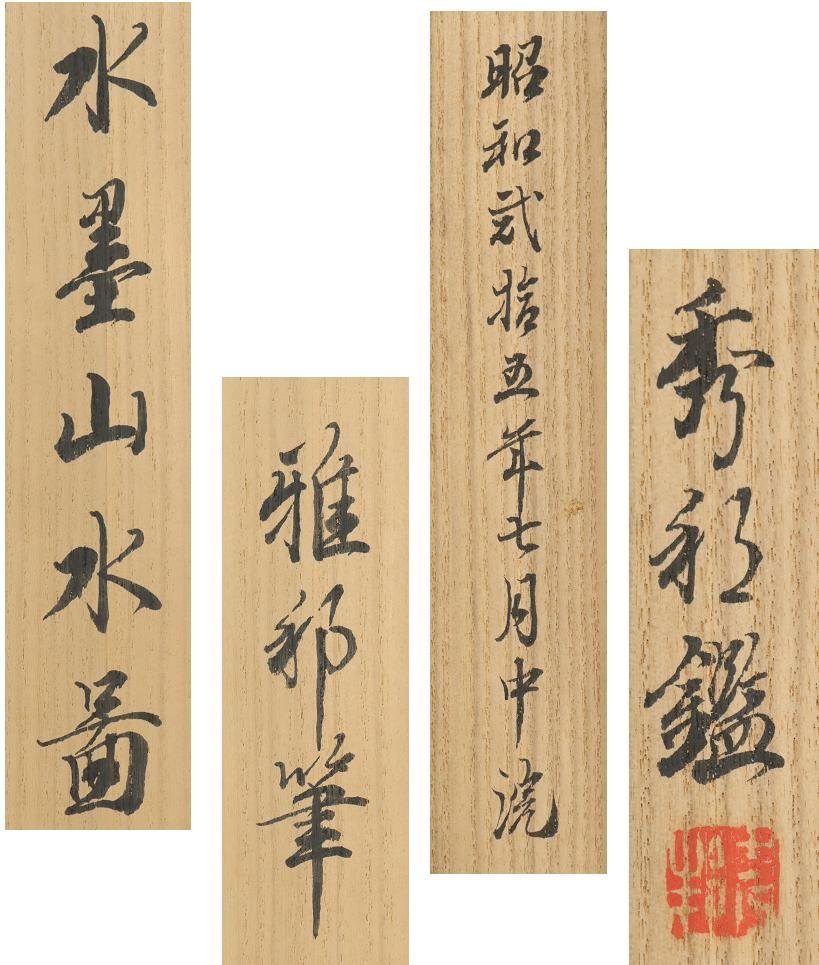 水墨山水圖
雅邦筆
昭和弐拾五年七月中浣
秀邦鑑